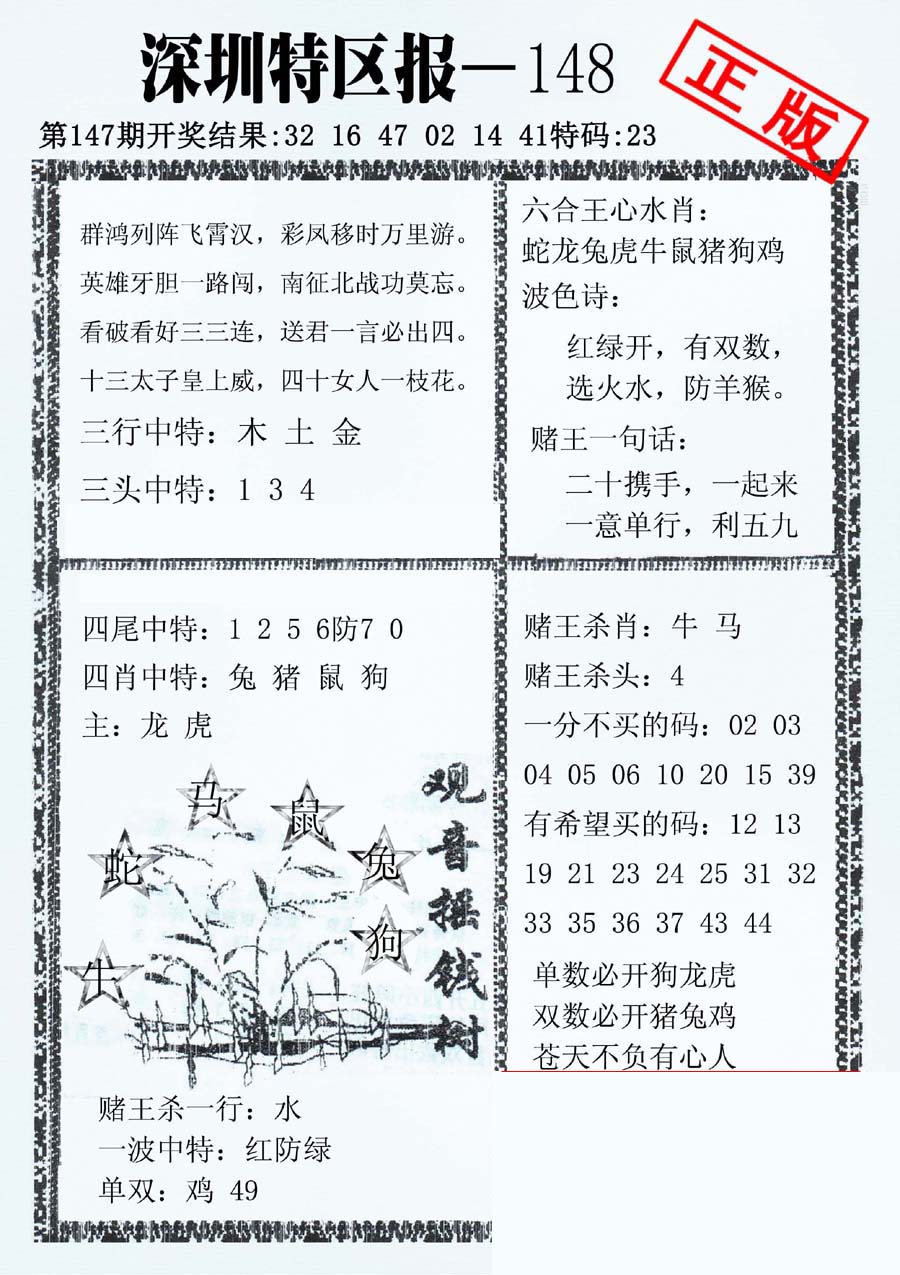 深圳特区报—148
正版
第147期开奖结果:32 16 47 02 14 41特码:23
群鸿列阵飞霄汉，彩凤移时万里游。
英雄牙胆一路闯，南征北战功莫忘。
看破看好三三连，送君一言必出四。
十三太子皇上威，四十女人一枝花。
三行中特：木 土 金
三头中特：1 3 4
六合王心水肖：
蛇龙兔虎牛鼠猪狗鸡
波色诗：
红绿开，有双数，
选火水，防羊猴。
赌王一句话：
二十携手，一起来
一意单行，利五九
四尾中特：1 2 5 6防7 0
四肖中特：兔 猪 鼠 狗
主：龙 虎
马
鼠
蛇
兔
狗
牛
观音摇钱树
赌王杀一行：水
一波中特：红防绿
单双：鸡 49
赌王杀肖：牛 马
赌王杀头：4
一分不买的码：02 03
04 05 06 10 20 15 39
有希望买的码：12 13
19 21 23 24 25 31 32
33 35 36 37 43 44
单数必开狗龙虎
双数必开猪兔鸡
苍天不负有心人